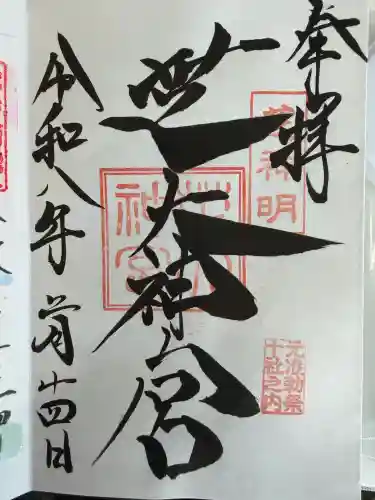 奉拝
芝神明
芝大神宮
元准勅祭
十社之内
令和八年 月廿四日